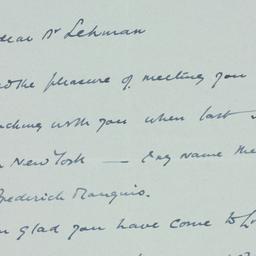 Dear Mr Lehman
the pleasure of meeting you
lunching with you when last
New York — my name then
Frederick Marquis.
glad you have come to